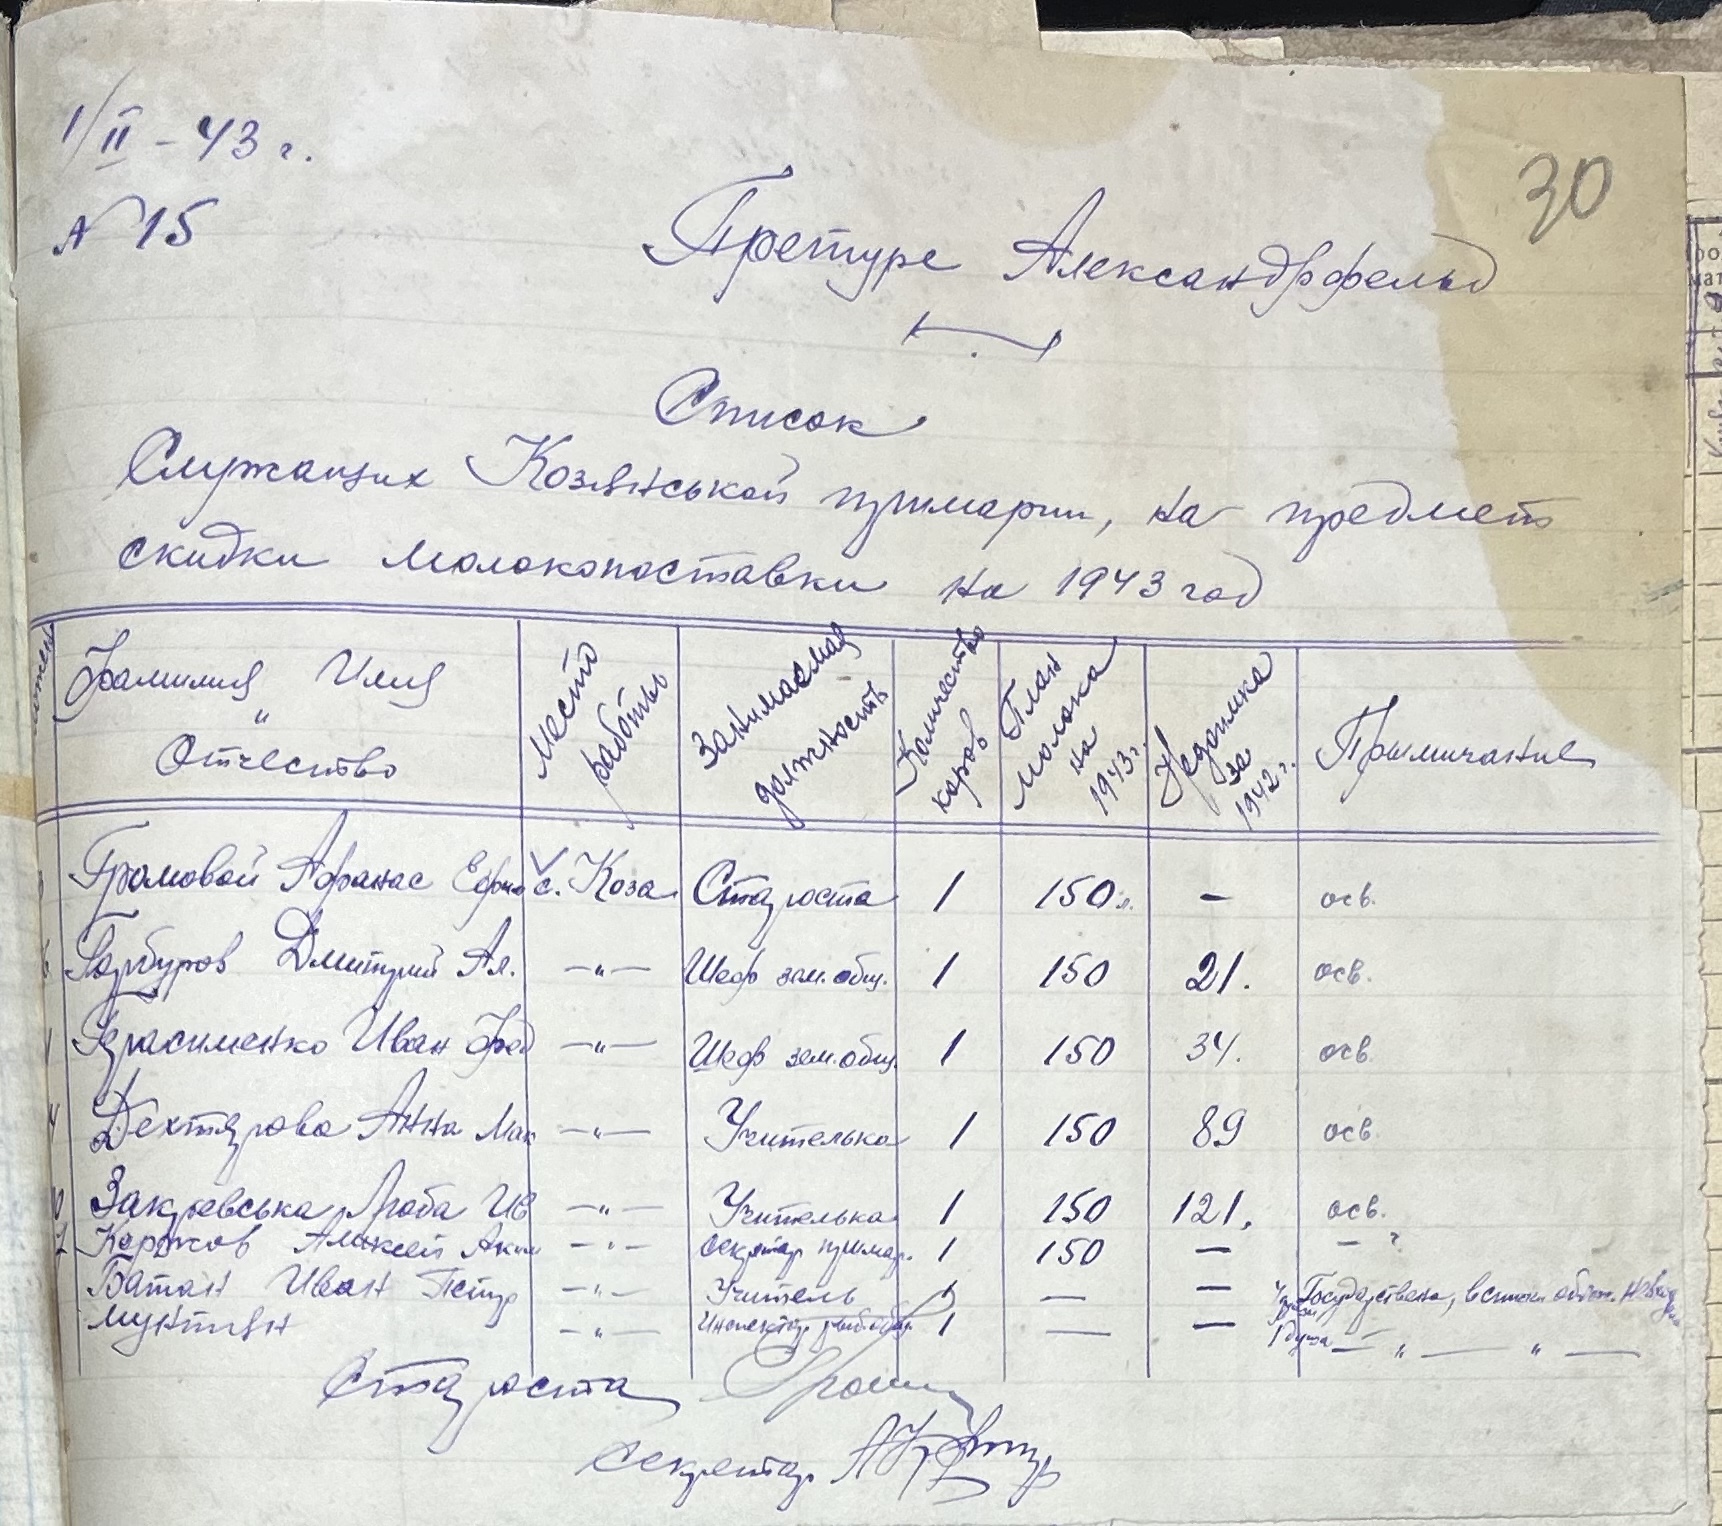 1/II - 43 г.
30
N 15
Претуре Александрфельд
Список
Служащих Козянськой примарии, на предмет
скидки молокопоставки на 1943 год
Фамилия Имя " Отчество | Место работы | Занимаемая должность | Количество коров | План молока на 1943 г. | Недоимка за 1942 г. | Примичание
Громовой Афанас Ефи с. Коза Староста 1 150 л. — осв.
Гарбузов Дмитрий Ал. —"— Шеф зем. общ. 1 150 21. осв.
Герасименко Иван Фед —"— Шеф зем. общ. 1 150 34. осв.
Дехтярова Анна Мак —"— Учителька 1 150 89 осв.
Закревська Люба Ив —"— Учителька 1 150 121. осв.
Коржов Алексей Аким —"— секретар примар. 1 150 — — ?
Батан Иван Петр —"— Учитель — — Государствена, в списки
Мунтян —"— Инспектор 1 — — — " — " —
Староста
Секретар